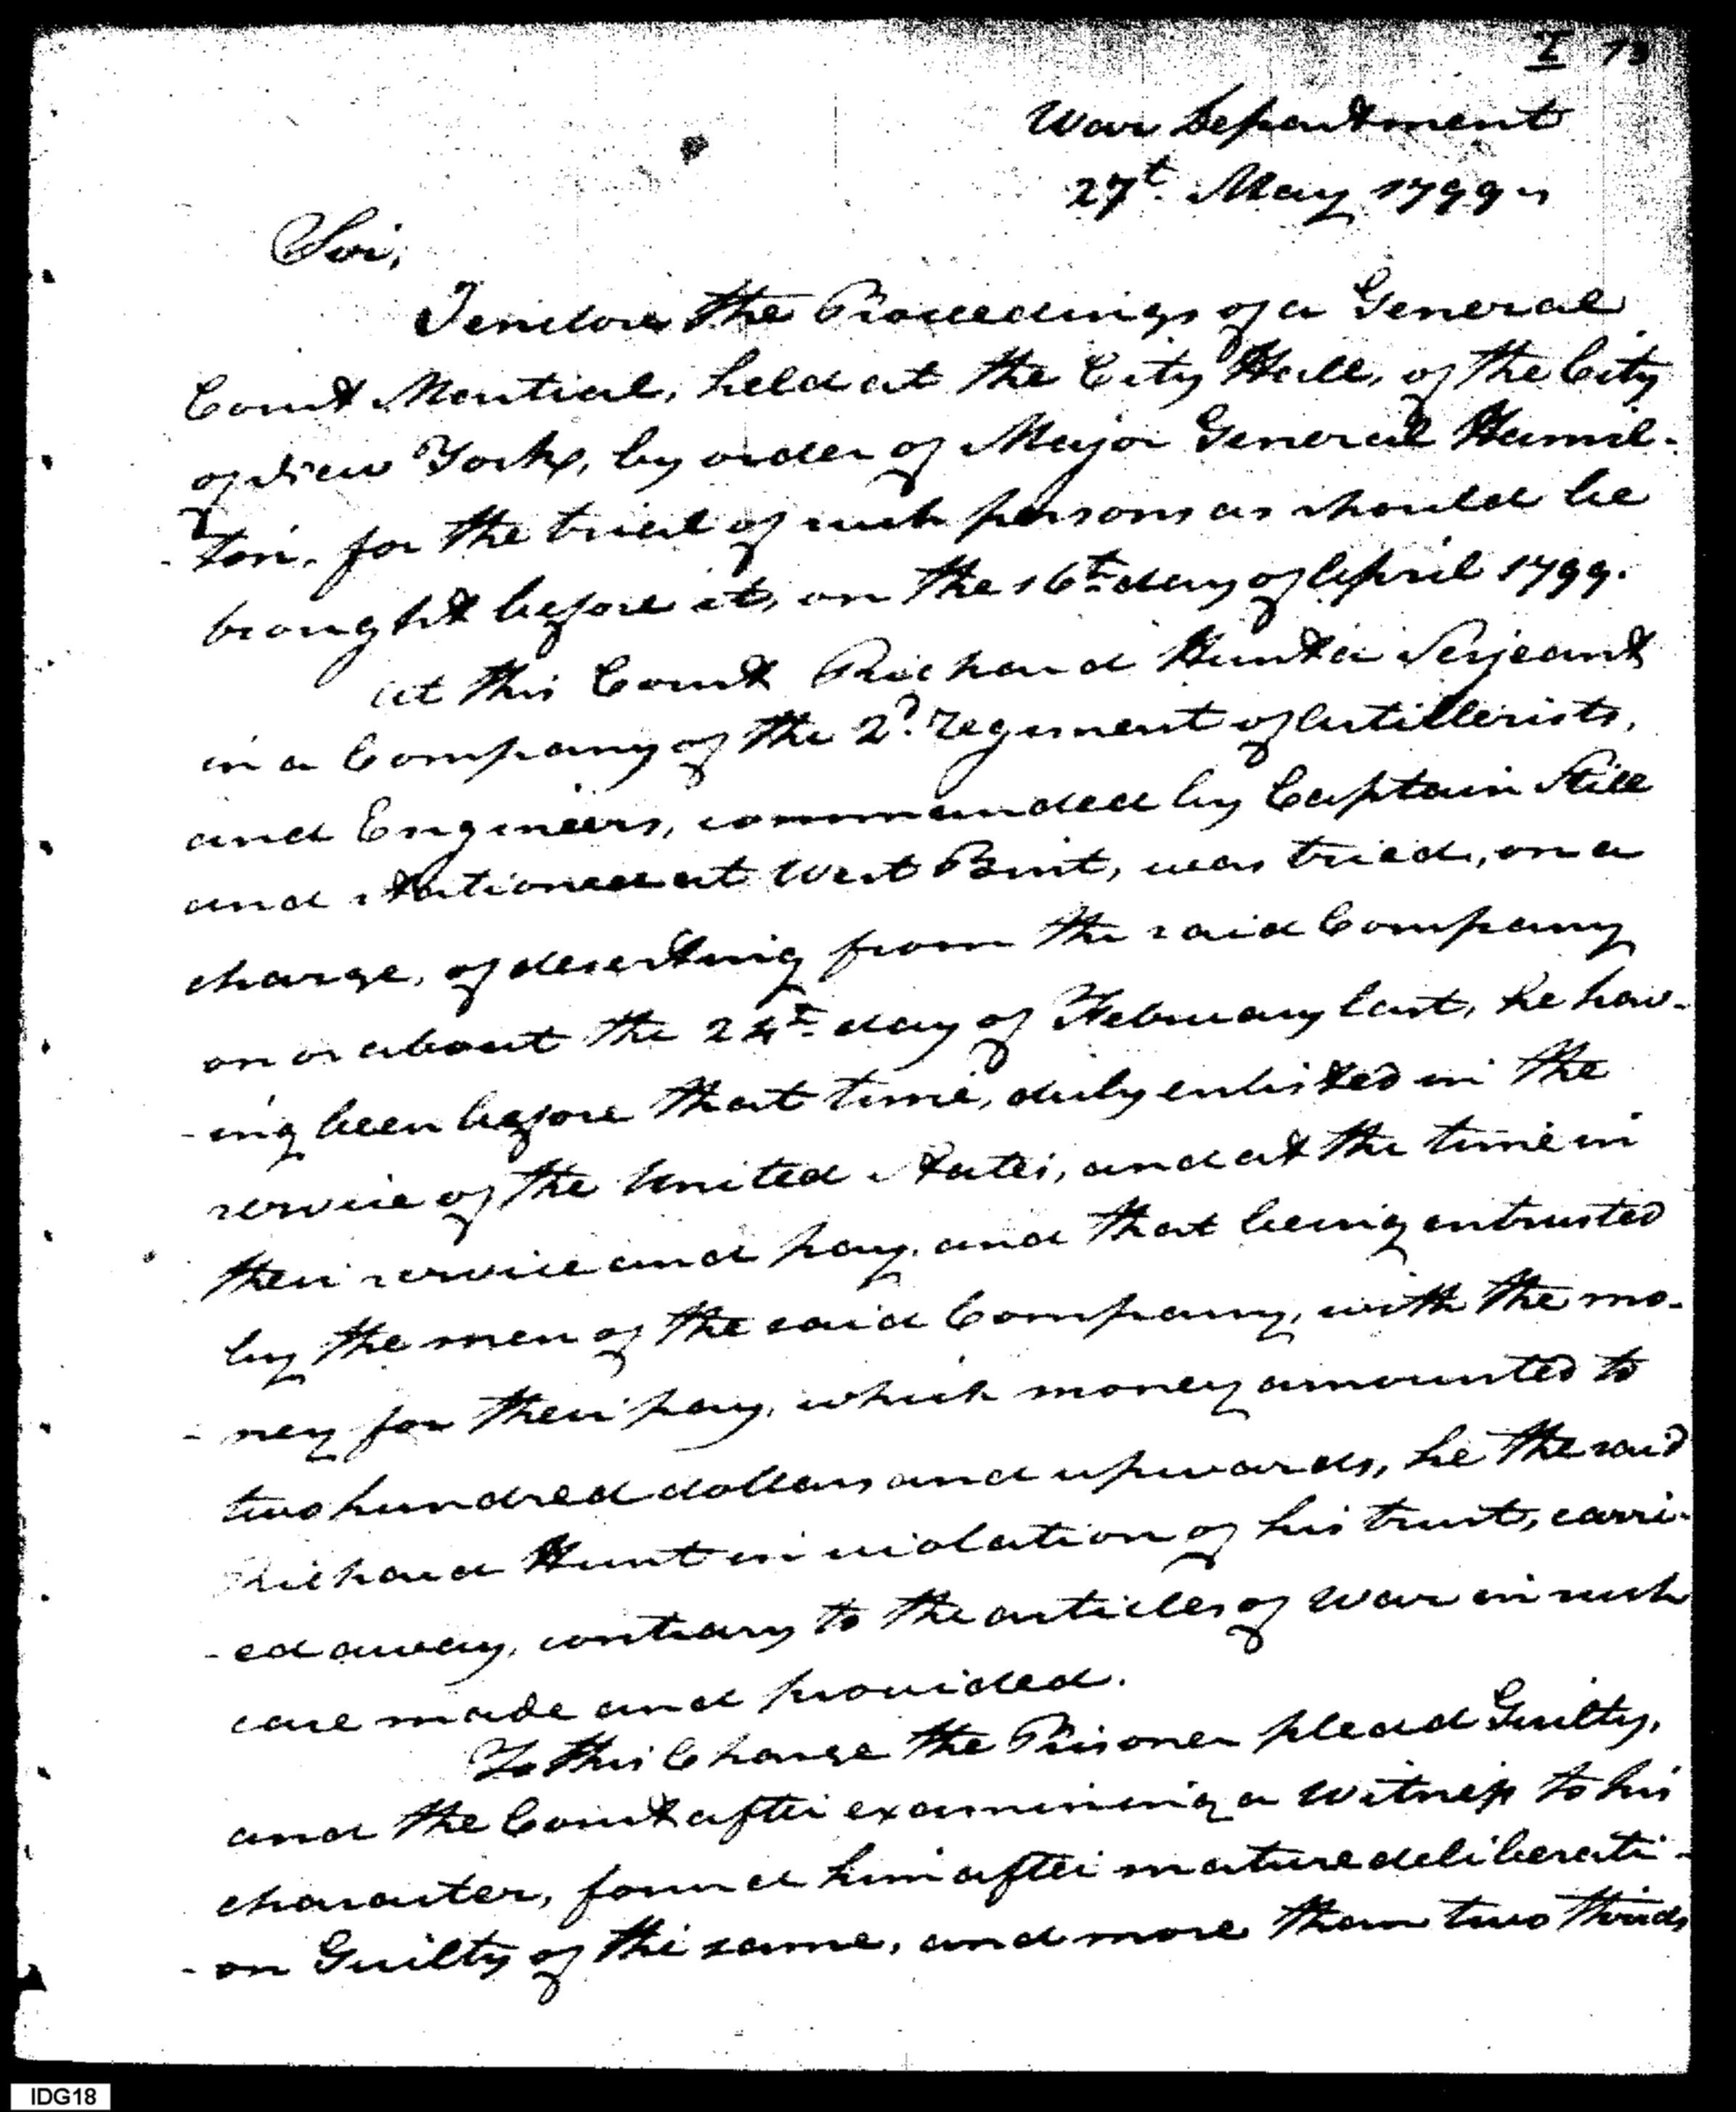 I 73
War Department
27t. May 1799
Sir,
I enclose the Proceedings of a General
Court Martial, held at the City Hall, of the City
of New York, by order of Major General Hamil-
-ton, for the trial of such persons as should be
brought before it, on the 16th day of April 1799.
At this Court Richard Hunt a Serjeant
in a Company of the 2d. regiment of Artillerists,
and Engineers, commanded by Captain Stille
and stationed at West Point, was tried, on a
charge, of deserting from the said Company
on or about the 24th day of February last, he hav-
-ing been before that time, duly enlisted in the
service of the United States, and at the time in
their service and pay, and that being entrusted
by the men of the said Company, with the mo-
-ney for their pay, which money amounted to
two hundred dollars and upwards, he the said
Richard Hunt in violation of his trust, carri-
-ed away, contrary to the articles of War in such
case made and provided.
To this Charge the Prisoner plead Guilty,
and the Court after examining a Witness to his
character, found him after mature deliberati-
-on Guilty of the same, and more than two thirds
IDG18